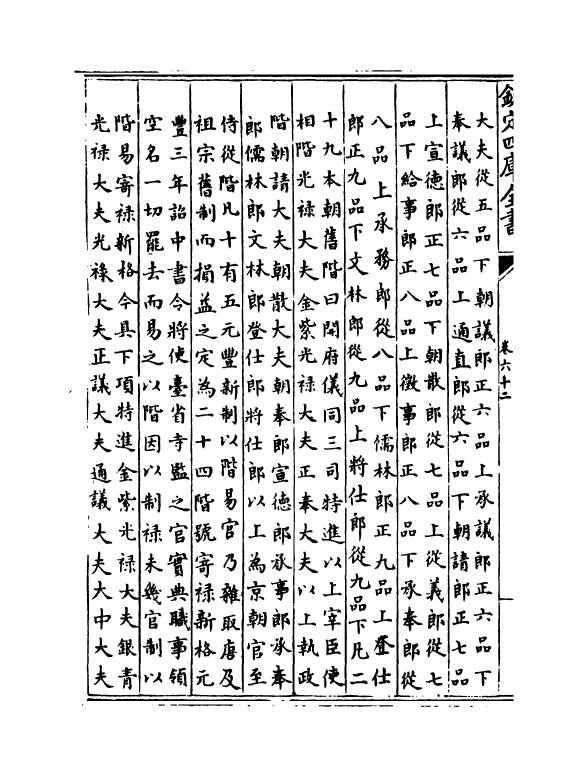 欽定四庫全書
卷六十二
大夫從五品下朝議郎正六品上承議郎正六品下
奉議郎從六品上通直郎從六品下朝請郎正七品
上宣德郎正七品下朝散郎從七品上從義郎從七
品下給事郎正八品上徴事郎正八品下承奉郎從
八品上承務郎從八品下儒林郎正九品上登仕
郎正九品下文林郎從九品上將仕郎從九品下凡二
十九本朝舊階曰開府儀同三司特進以上宰臣使
相階光禄大夫金紫光禄大夫正奉大夫以上執政
階朝請大夫朝散大夫朝奉郎宣德郎承事郎承奉
郎儒林郎文林郎登仕郎將仕郎以上為京朝官至
侍從階凡十有五元豐新制以階易官乃雜取唐及
祖宗舊制而損益之定為二十四階號寄禄新格元
豐三年詔中書令將使臺省寺監之官實典職事領
空名一切罷去而易之以階因以制禄未幾官制以
階易寄禄新格今具下項特進金紫光禄大夫銀青
光禄大夫光禄大夫正議大夫通議大夫大中大夫